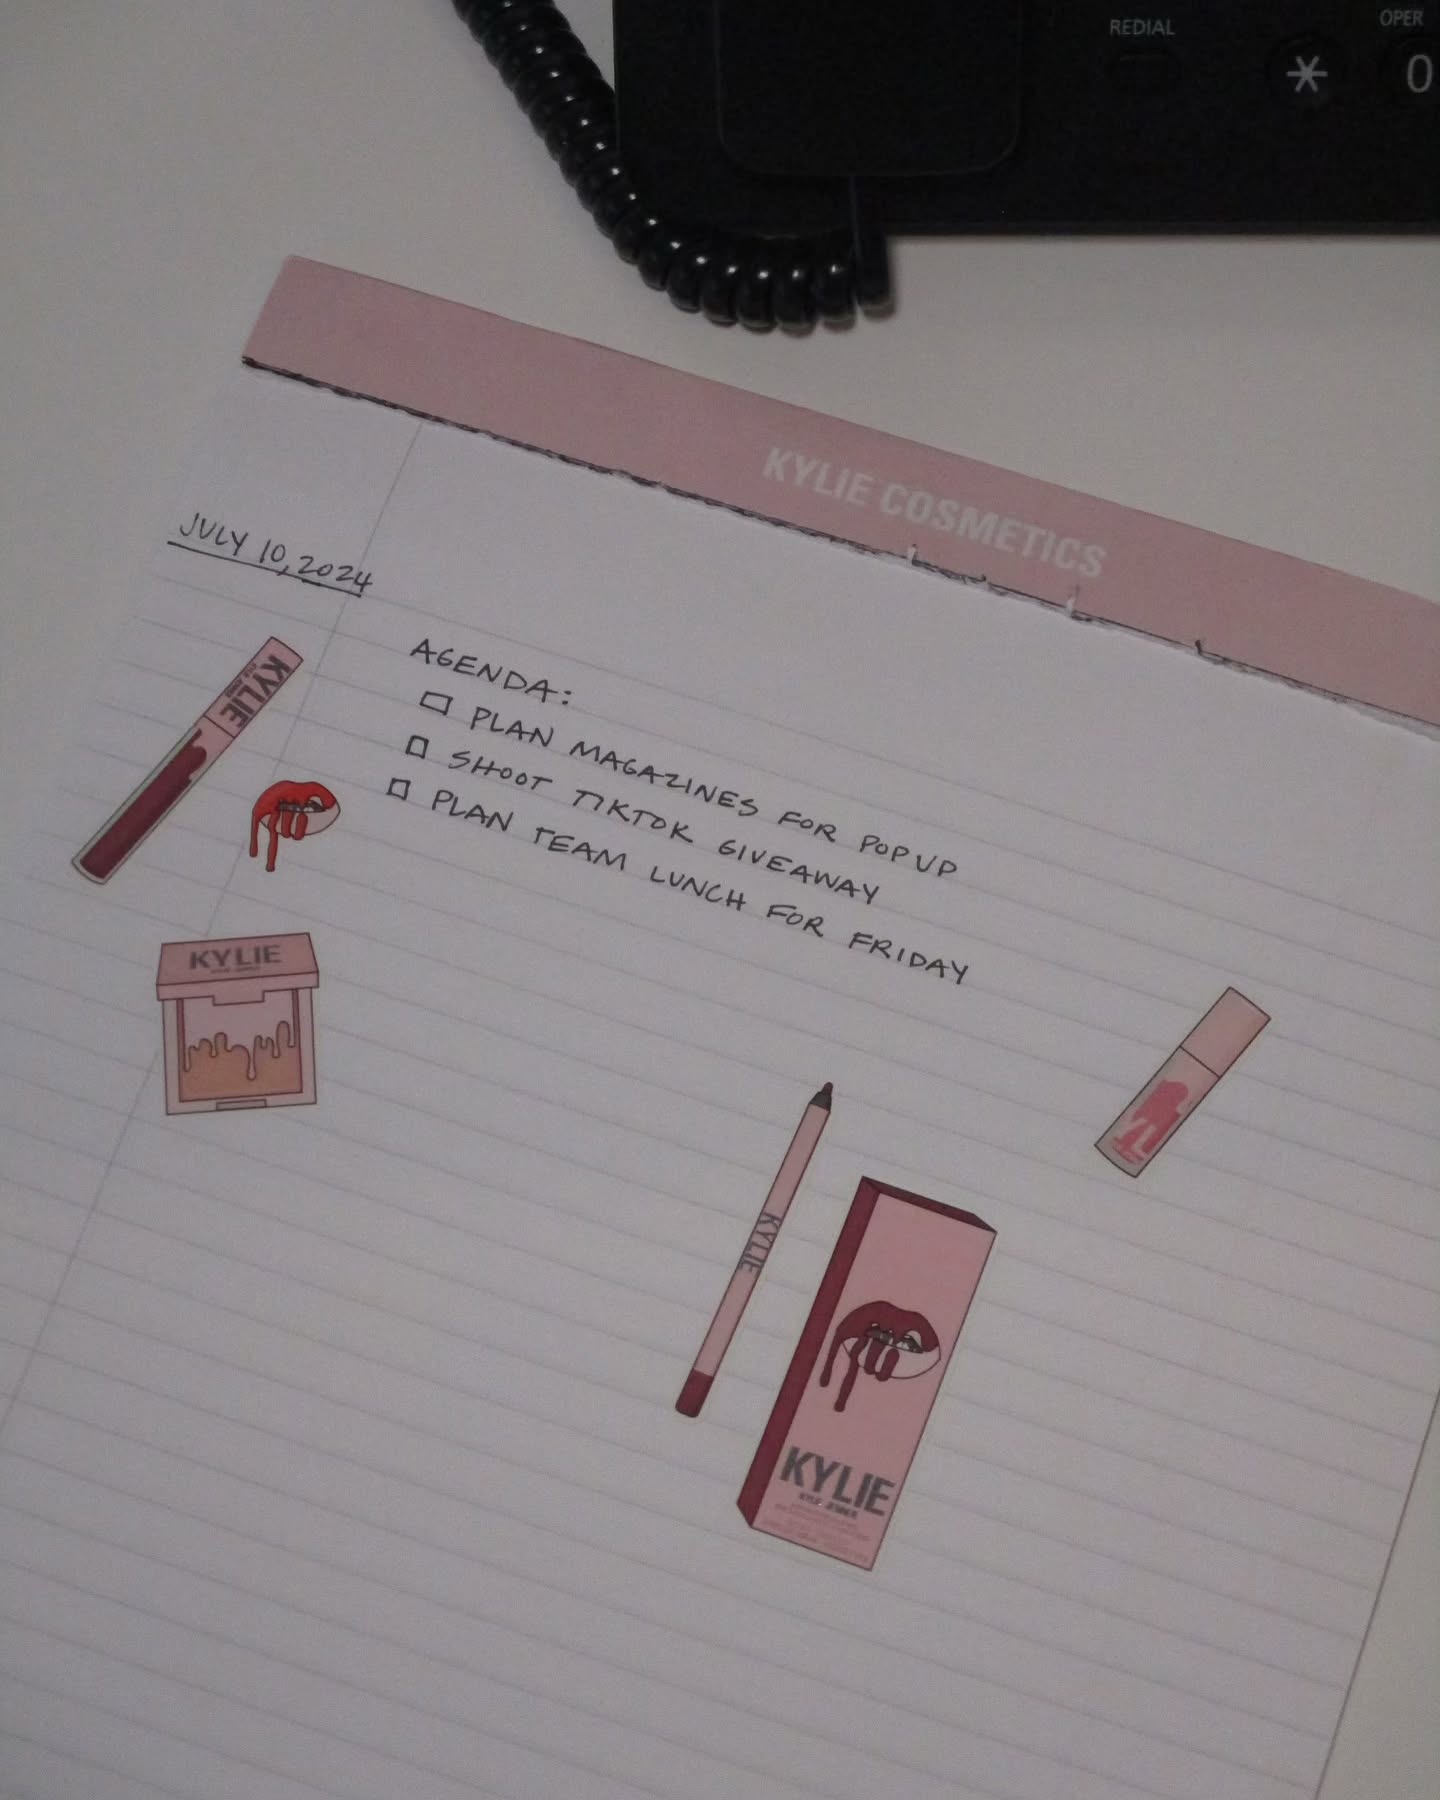 REDIAL
OPER
*
0
KYLIE COSMETICS
JULY 10, 2024
AGENDA:
PLAN MAGAZINES FOR POPUP
SHOOT TIKTOK GIVEAWAY
PLAN TEAM LUNCH FOR FRIDAY
KYLIE
KYLIE
KYLIE
KYLIE
KYLIE JENNER